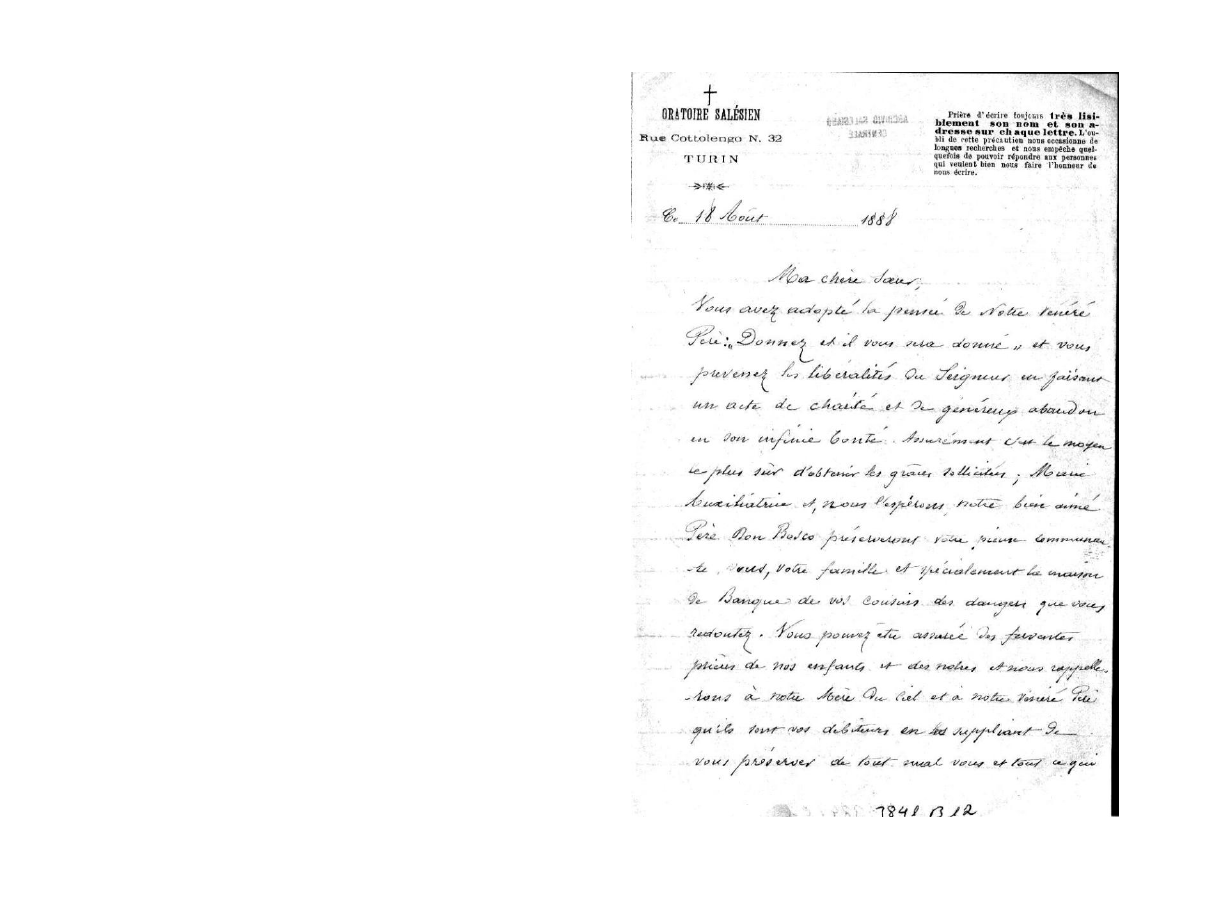 ORATOIRE SALÉSIEN
Rue Cottolengo N. 32
TURIN
Prière d'écrire toujours très lisi-
blement son nom et son a-
dresse sur chaque lettre. L'ou-
bli de cette précaution nous occasionne de
longues recherches et nous empêche quel-
quefois de pouvoir répondre aux personnes
qui veulent bien nous faire l'honneur de
nous écrire.
ARCHIVIO SALESIANO
CENTRALE
Ce 18 Août 1888
Ma chère Sœur,
Vous avez adopté la pensée de Notre vénéré
Père: „Donnez et il vous sera donné „ et vous
prevenez les libéralités du Seigneur en faisant
un acte de charité et de généreux abandon
en son infinie bonté. Assurément c'est le moyen
le plus sûr d'obtenir les grâces sollicitées; Marie
Auxiliatrice et, nous l'espérons, notre bien aimé
Père Don Bosco préserveront votre pieuse communau-
-té, vous, votre famille et spécialement la maison
de Banque de vos cousins des dangers que vous
redoutez. Vous pouvez être assurée des ferventes
prières de nos enfants et des notres et nous rappelle-
-rons à notre Mère du Ciel et à notre vénéré Père
qu'ils sont vos débiteurs en les suppliant de
vous préserver de tout mal vous et tout ce qui